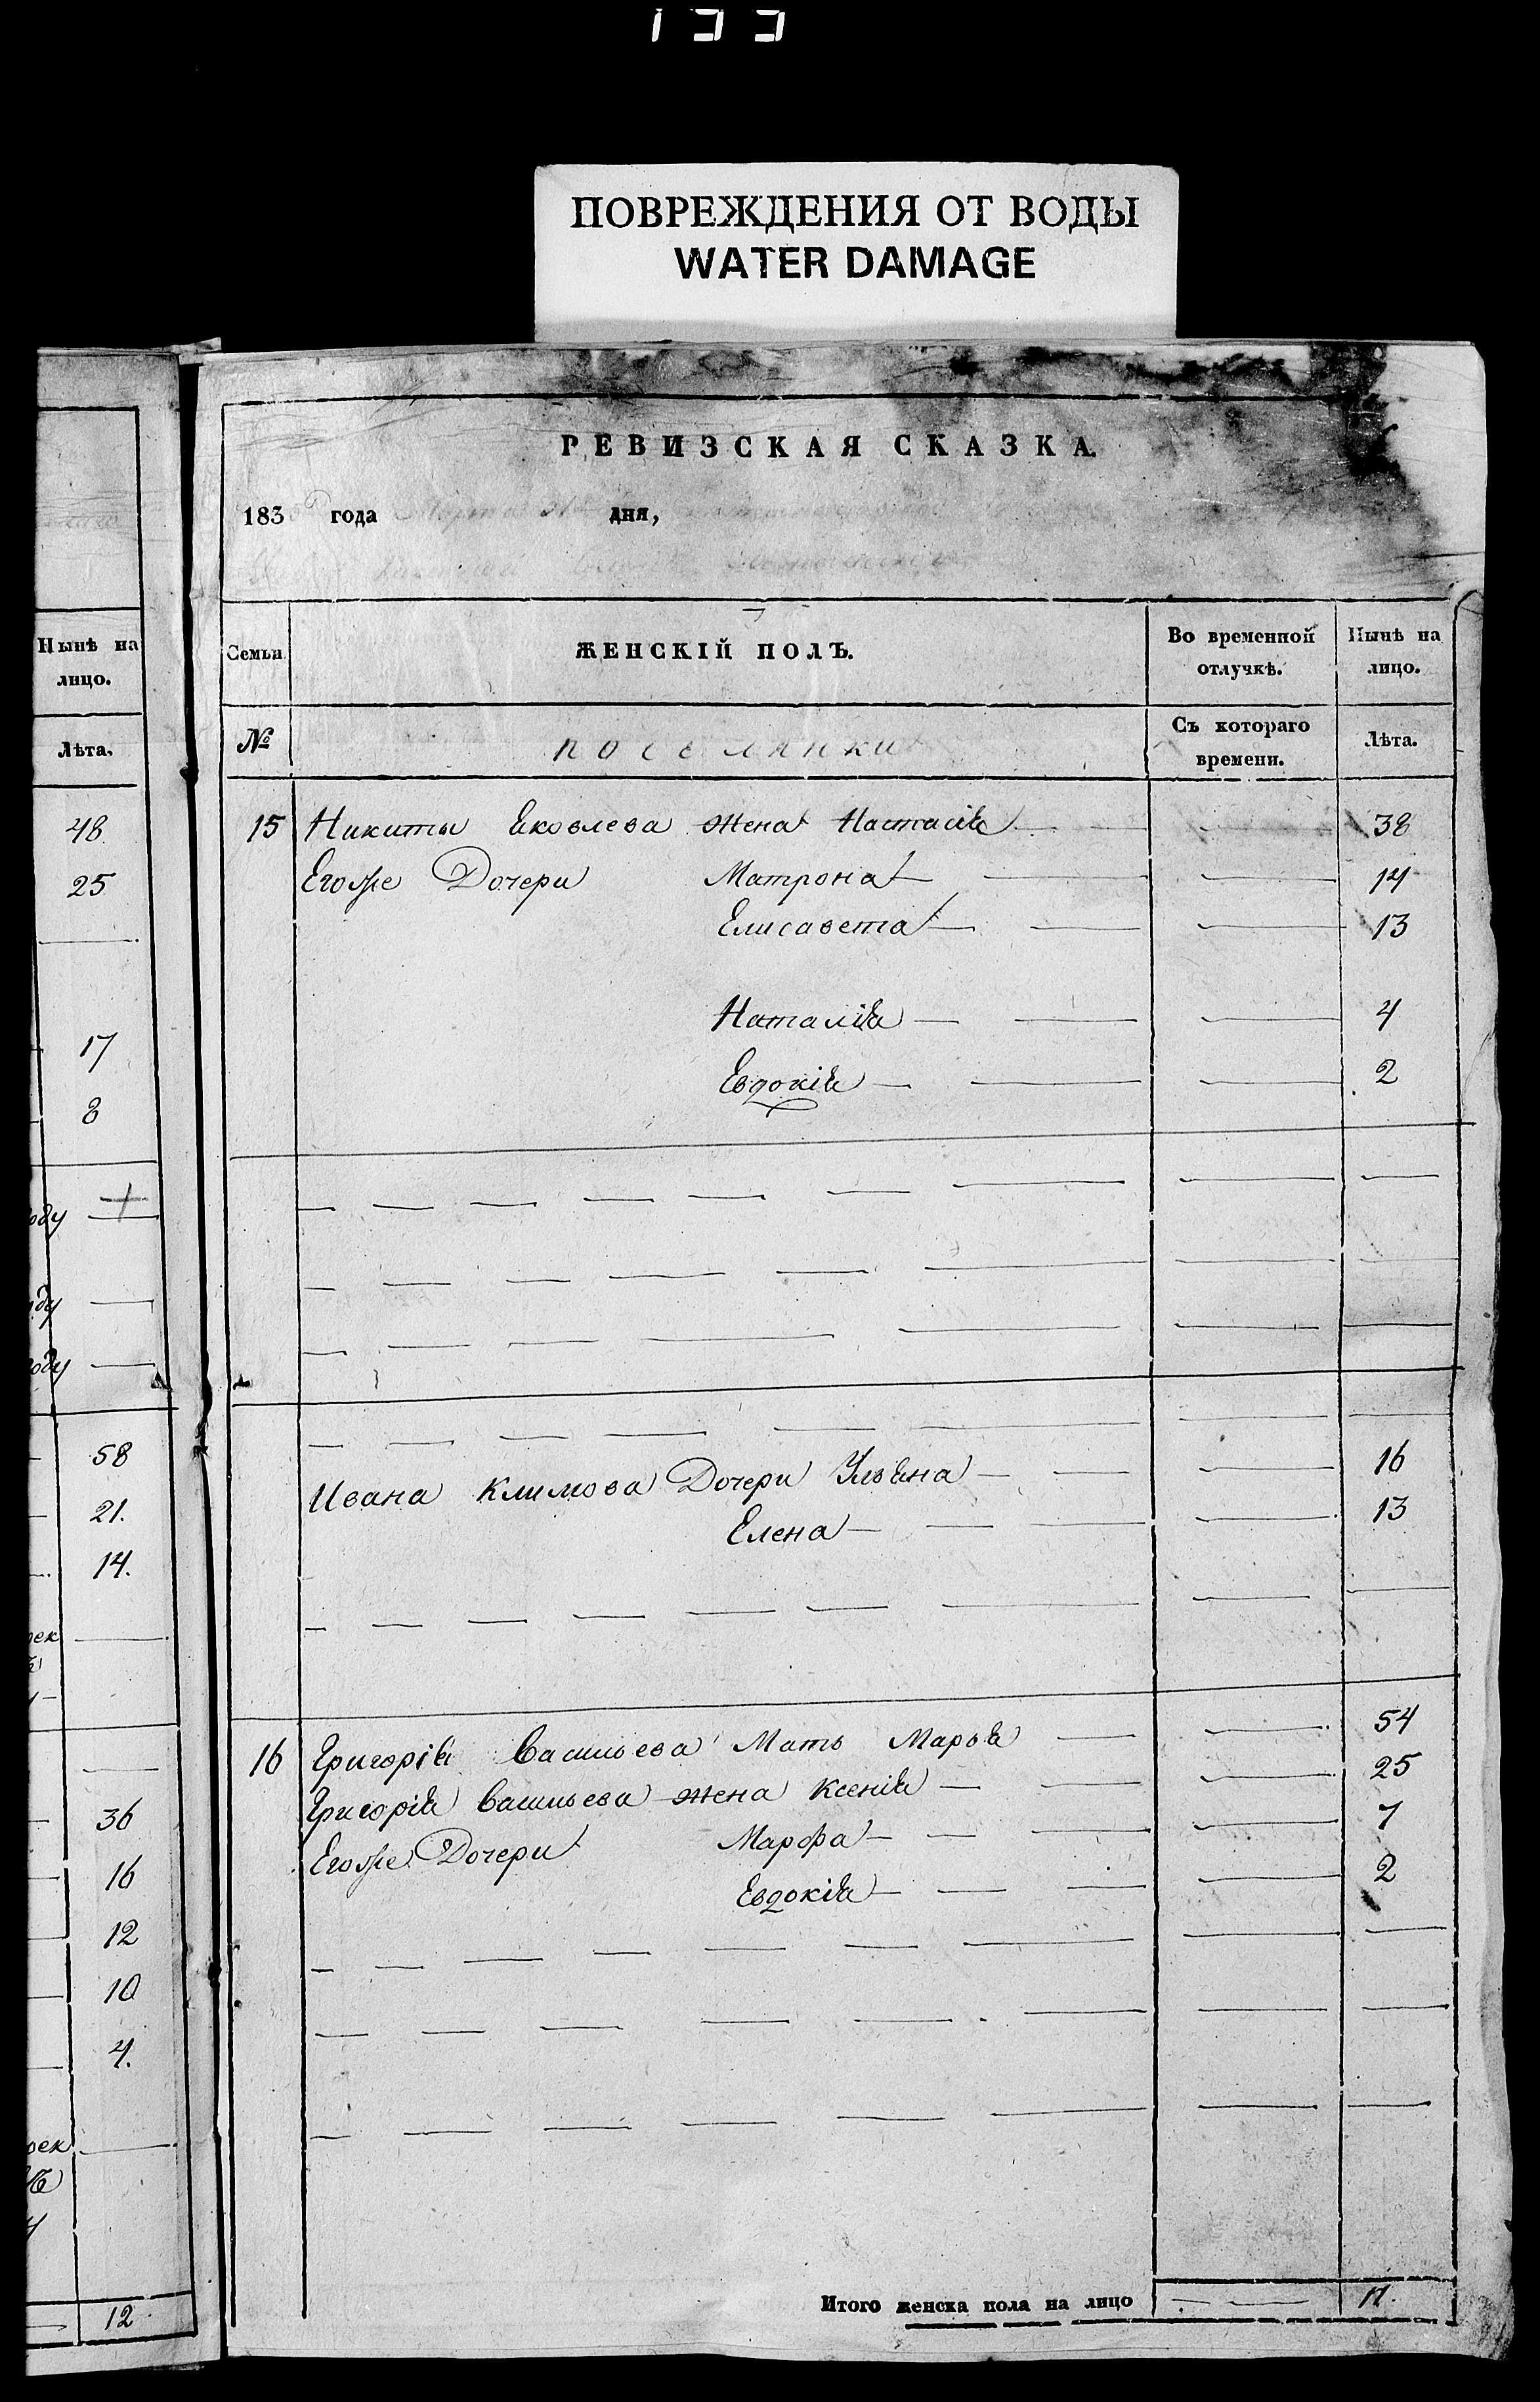 ПОВРЕЖДЕНИЯ ОТ ВОДЫ
WATER DAMAGE
РЕВИЗСКАЯ СКАЗКА.
183 года Марта дня,
Нынѣ на лицо.
Лѣта.
48
25
17
8
оду
ду
оду
58
21.
14.
рек
36
16
12
10
4.
рек
12
Семьи
ЖЕНСКІЙ ПОЛЪ.
Во временной отлучкѣ.
Нынѣ на лицо.
№
поселянки
Съ котораго времени.
Лѣта.
15 Никиты Яковлева жена Настасія 38
Егоже Дочери Матрона 14
Елисавета 13
Наталія 4
Евдокія 2
Ивана Климова Дочери Ульяна 16
Елена 13
16 Григорія Васильева Мать Марья 54
Григорія Васильева жена Ксенія 25
Егоже Дочери Марфа 7
Евдокія 2
Итого женска пола на лицо 11.